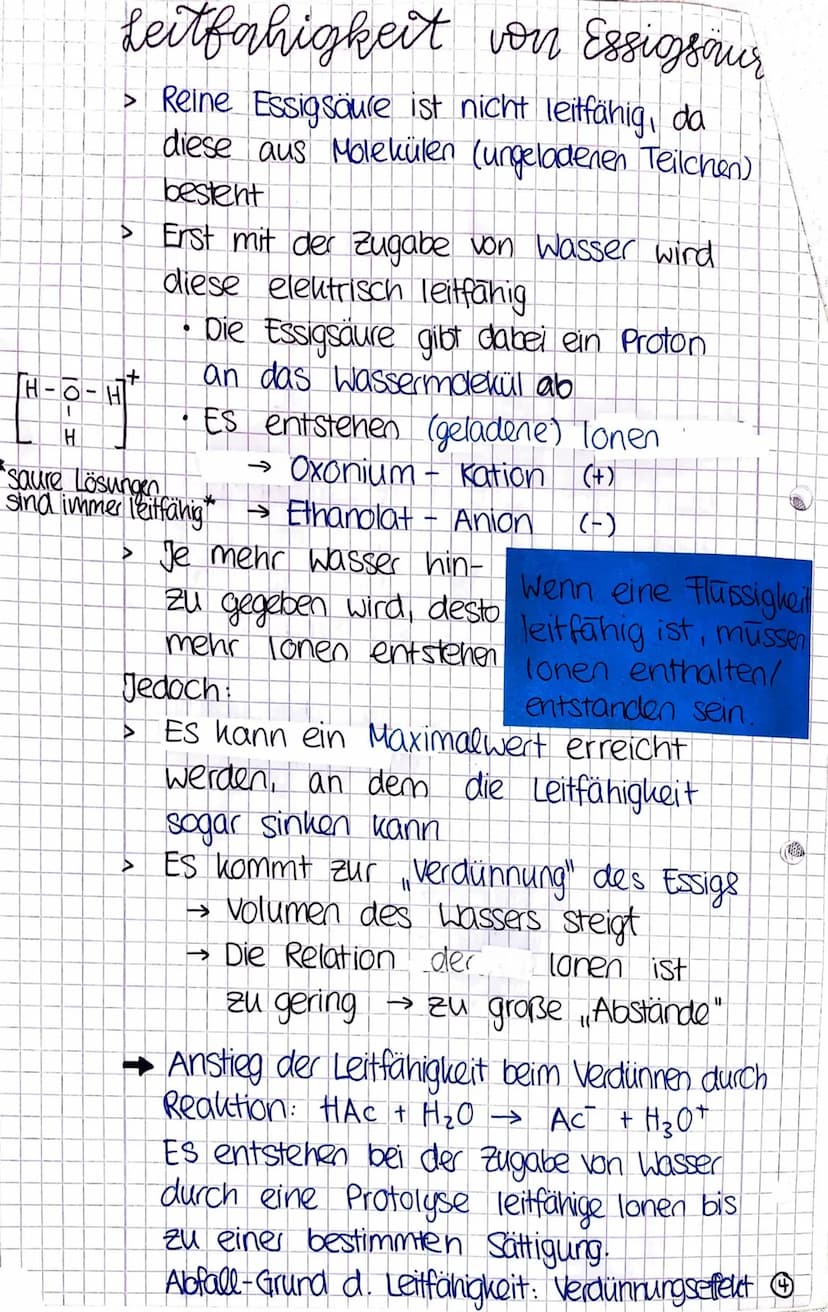 Leitfähigkeit von Essigsäur
> Reine Essigsäure ist nicht leitfähig, da
diese aus Molekülen (ungeladenen Teilchen)
besteht
> Erst mit der Zugabe von Wasser wird
diese elektrisch leitfähig
• Die Essigsäure gibt dabei ein Proton
an das Wassermolekül ab
[H-Ō-H]⁺
H
• Es entstehen (geladene) Ionen
→ Oxonium - Kation (+)
*saure Lösungen
sind immer leitfähig*
→ Ethanolat - Anion (-)
> Je mehr Wasser hin-
zu gegeben wird, desto
mehr Ionen entstehen
Wenn eine Flüssigkeit
leitfähig ist, müssen
Ionen enthalten/
entstanden sein.
Jedoch:
> Es kann ein Maximalwert erreicht
werden, an dem die Leitfähigkeit
sogar sinken kann
> Es kommt zur „Verdünnung" des Essigs
→ Volumen des Wassers steigt
→ Die Relation der Ionen ist
zu gering → zu große „Abstände"
➡ Anstieg der Leitfähigkeit beim Verdünnen durch
Reaktion: HAc + H₂O → Ac⁻ + H₃O⁺
Es entstehen bei der Zugabe von Wasser
durch eine Protolyse leitfähige Ionen bis
zu einer bestimmten Sättigung.
Abfall-Grund d. Leitfähigkeit: Verdünnungseffekt ④